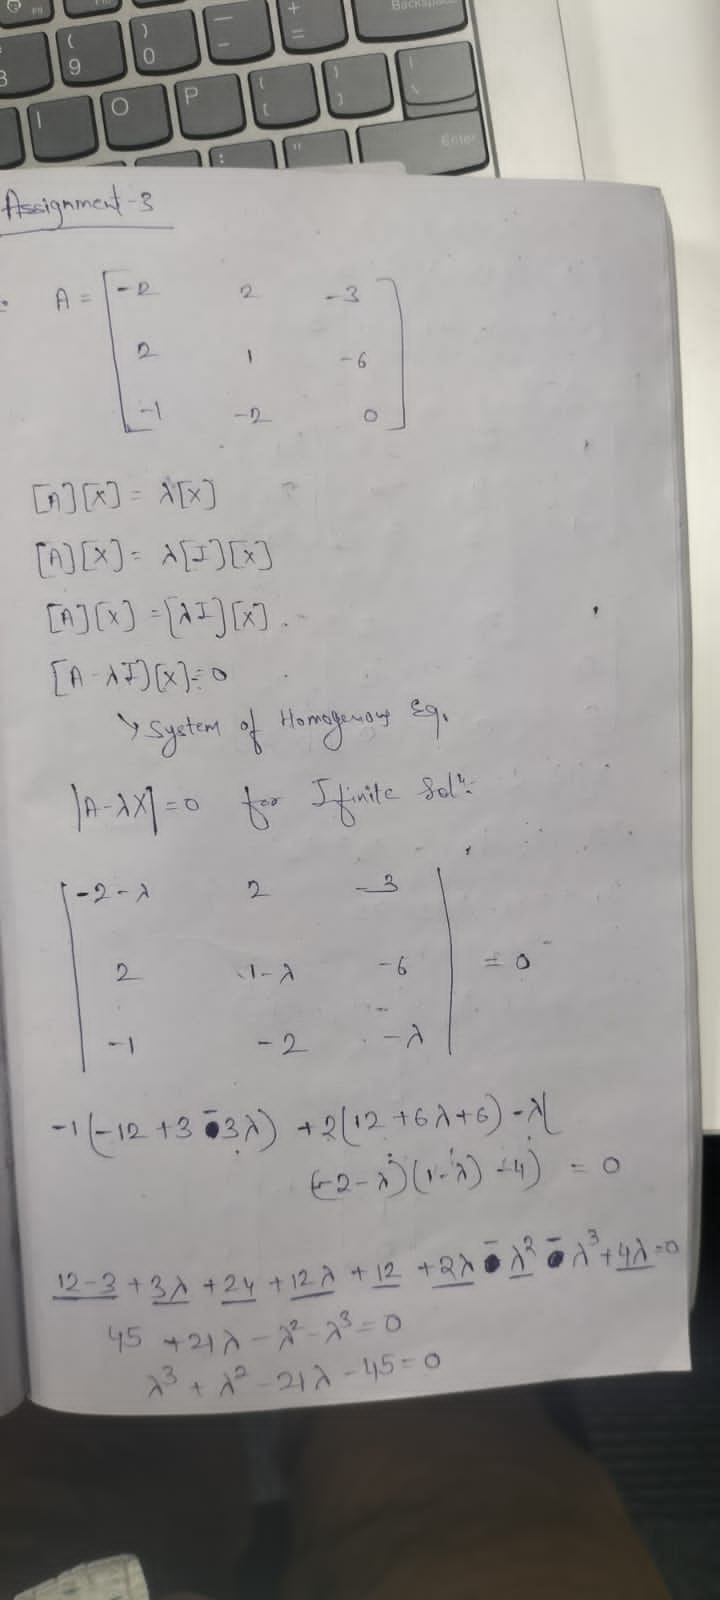 F9
Backspace
( 9
) 0
_ -
+ =
I
O
P
{ [
} ]
| \
: ;
" '
Enter
Assignment-3
A = [ -2 2 -3
2 1 -6
-1 -2 0 ]
[A][X] = λ[X]
[A][X] = λ[I][X]
[A][X] = [λI][X].
[A-λI][X]=0
↘ System of Homogenous Eq.
|A-λX|=0 for Ifinite Solⁿ:
| -2-λ 2 -3 |
| 2 1-λ -6 | = 0
| -1 -2 -λ |
-1(-12+3-3λ) +2(12+6λ+6) -λ(
(-2-λ)(1-λ) -4) = 0
12-3+3λ+24+12λ+12+2λ-λ²-λ³+4λ=0
45 +21λ-λ²-λ³=0
λ³+λ²-21λ-45=0